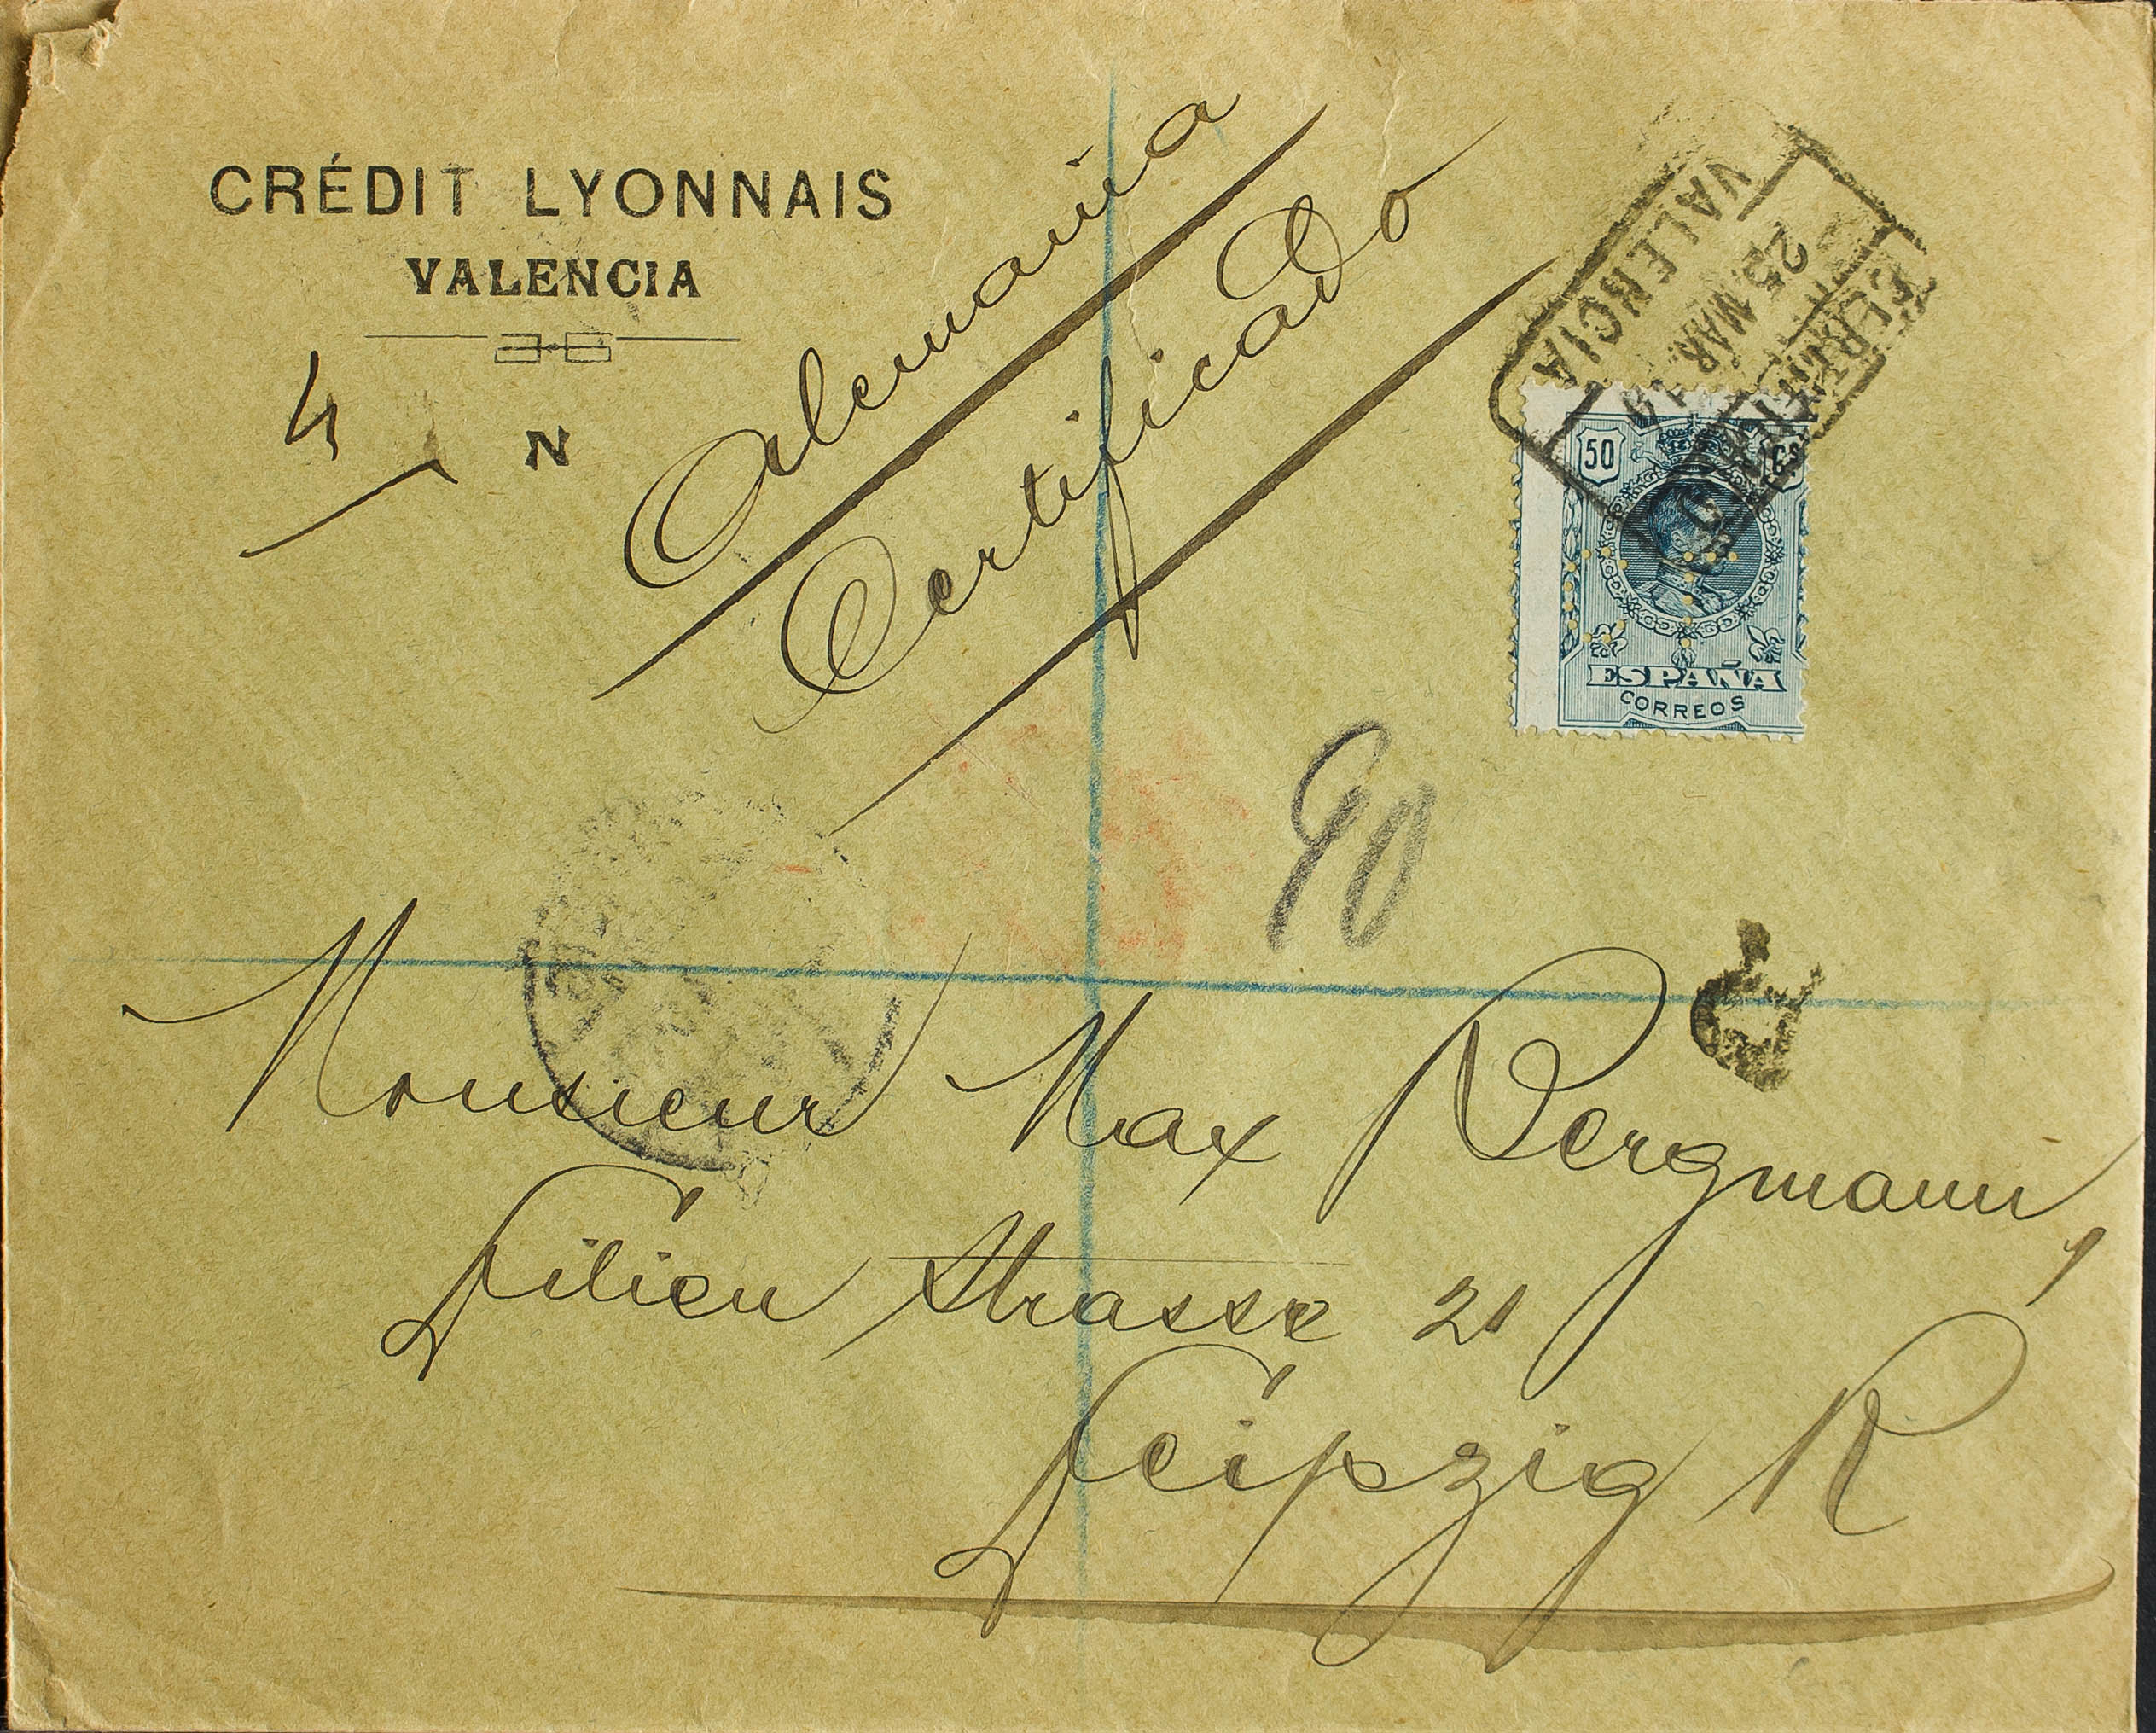 CRÉDIT LYONNAIS
VALENCIA
4
N
Alemania
Certificado
CERTIFICADO
25 MAR 19
VALENCIA
50 Cs
ESPAÑA
CORREOS
90
Monsieur Max Bergmann,
Lilien Strasse 21
Leipzig R